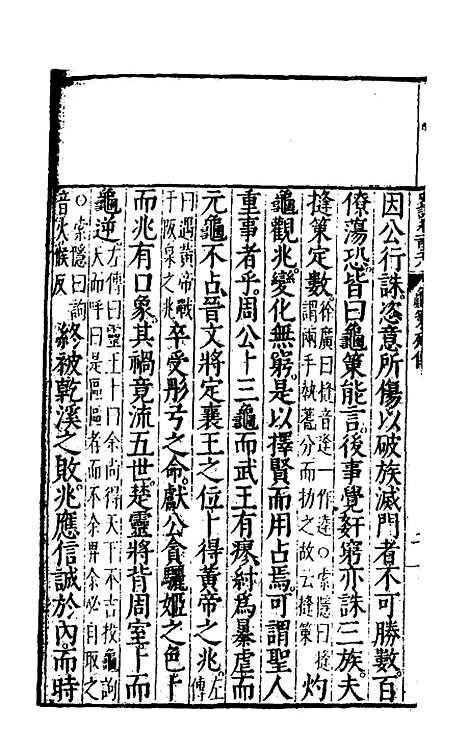 因公行誅。恣意所傷。以破族滅門者不可勝數。百
僚蕩恐。皆曰龜策能言。後事覺姧窮。亦誅三族。夫
摓策定數。徐廣曰摓音逢一作達○索隱曰摓謂兩手執蓍分而扐之故云摓策灼
龜觀兆。變化無窮。是以擇賢而用占焉。可謂聖人
重事者乎。周公卜三龜。而武王有瘳。紂爲暴虐。而
元龜不占。晉文將定襄王之位。卜得黃帝之兆。左傳
曰遇黃帝戰于阪泉之兆卒受彤弓之命。獻公貪驪姬之色。卜
而兆有口象。其禍竟流五世。楚靈將背周室。卜而
龜逆。左傳曰靈王卜曰余尚得天下不吉投龜詢天而呼曰是區區者而不余畀余必自取之
○索隱曰詢音火候反終被乾溪之敗。兆應信誠於內。而時